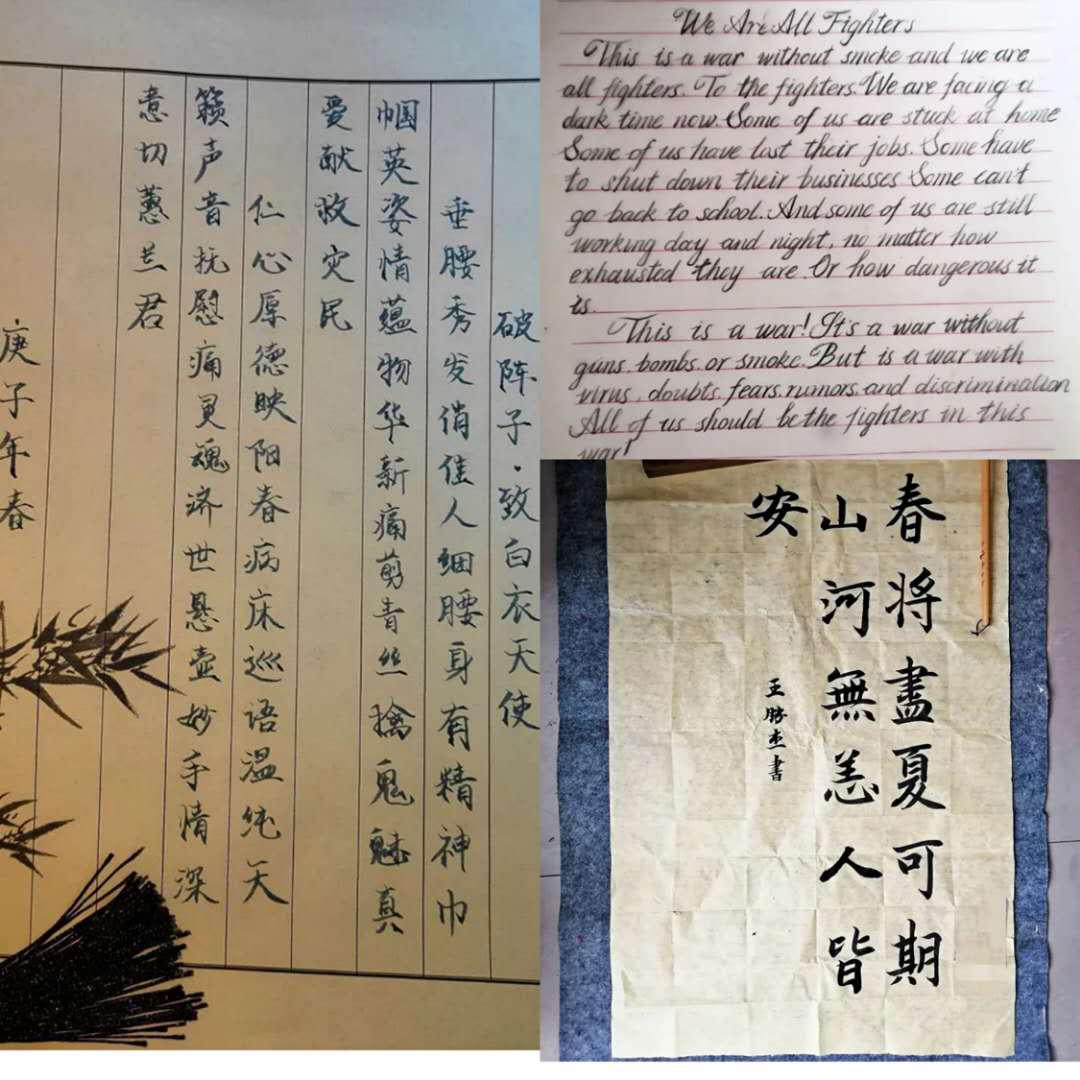 破阵子·致白衣天使
垂腰秀发俏佳人细腰身有精神巾
帼英姿情蕴物华新痛剪青丝擒鬼魅真
爱献救灾民
仁心厚德映阳春病床巡语温纯天
籁声音抚慰痛灵魂济世悬壶妙手情深
意切蕙兰君
庚子年春
We Are All Fighters
This is a war without smoke and we are
all fighters. To the fighters. We are facing a
dark time now. Some of us are stuck at home
Some of us have lost their jobs. Some have
to shut down their businesses Some can't
go back to school. And some of us are still
working day and night, no matter how
exhausted they are. Or how dangerous it
is.
This is a war! It's a war without
guns, bombs, or smoke. But is a war with
virus, doubts, fears, rumors, and discrimination
All of us should be the fighters in this
war!
春将盡夏可期
山河無恙人皆
安
王勝杰書